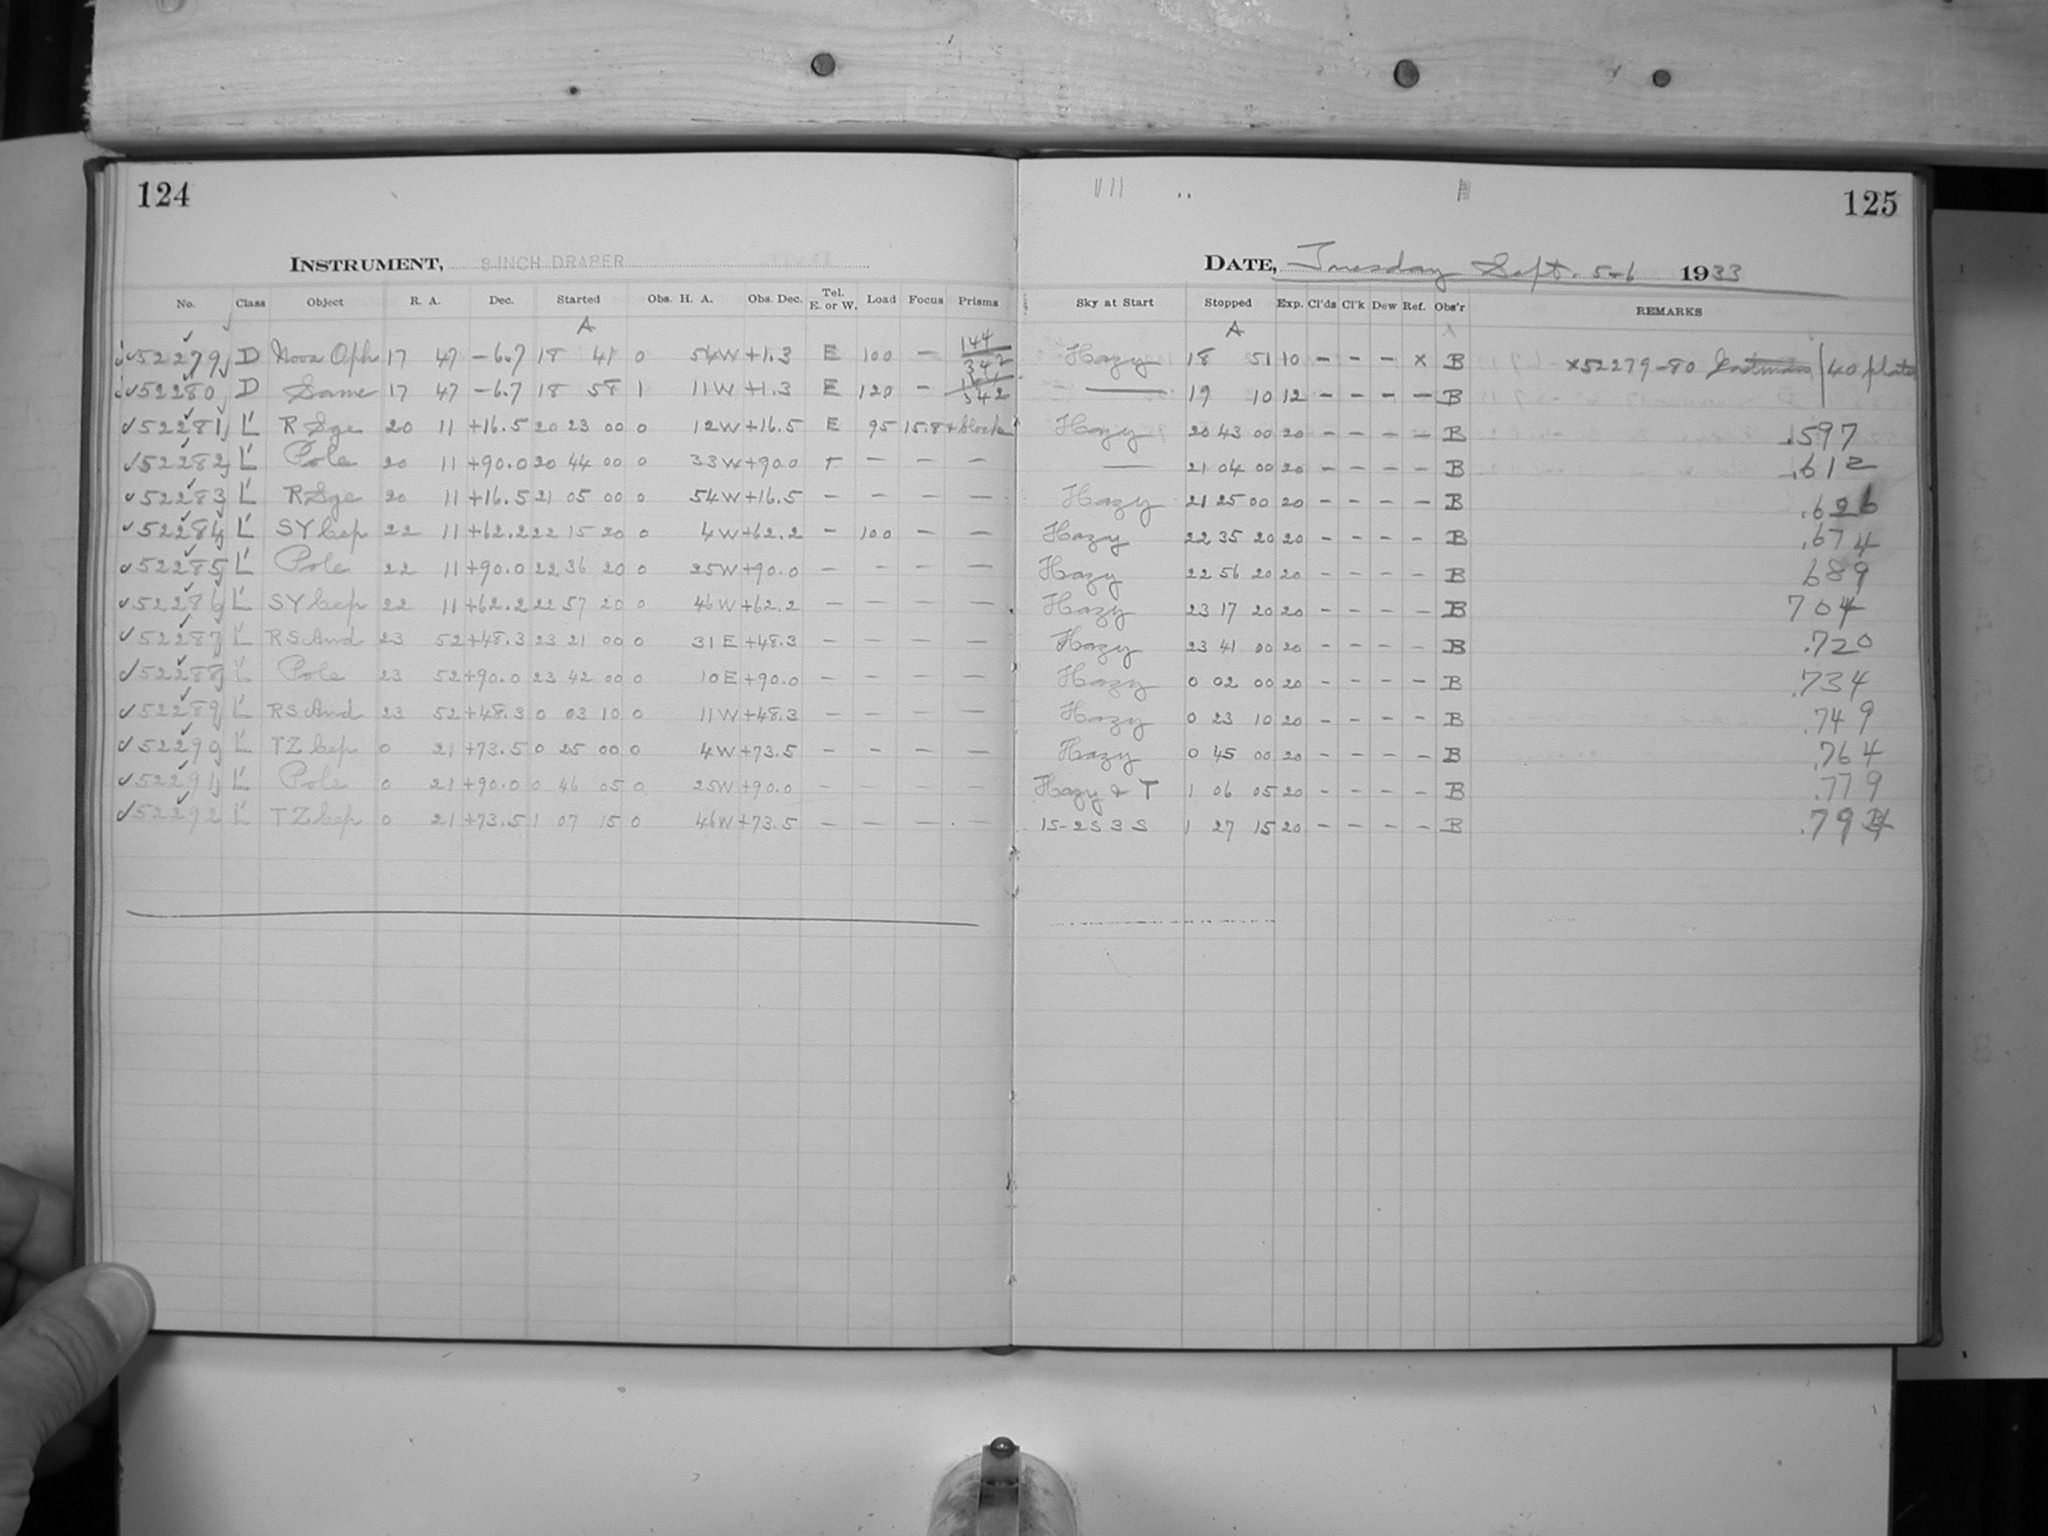 124
INSTRUMENT, 8-INCH DRAPER
No. Class Object R. A. Dec. Started Obs. H. A. Obs. Dec. Tel. E. or W. Load Focus Prisms
A
52279 D Nova Oph 17 47 -6.7 18 41 0 54W +1.3 E 100 - 144 342
52280 D Same 17 47 -6.7 18 58 1 11W +1.3 E 120 - 342
52281 L' R Sge 20 11 +16.5 20 23 00 0 12W +16.5 E 95 15.8 + block
52282 L' Pole 20 11 +90.0 20 44 00 0 33W +90.0 - - -
52283 L' R Sge 20 11 +16.5 21 05 00 0 54W +16.5 - - - -
52284 L' SY Cep 22 11 +62.2 22 15 20 0 4W +62.2 - 100 - -
52285 L' Pole 22 11 +90.0 22 36 20 0 25W +90.0 - - - -
52286 L' SY Cep 22 11 +62.2 22 57 20 0 46W +62.2 - - - -
52287 L' RS And 23 52 +48.3 23 21 00 0 31E +48.3 - - - -
52288 L' Pole 23 52 +90.0 23 42 00 0 10E +90.0 - - - -
52289 L' RS And 23 52 +48.3 0 03 10 0 11W +48.3 - - - -
52290 L' TZ Cep 0 21 +73.5 0 25 00 0 4W +73.5 - - - -
52291 L' Pole 0 21 +90.0 0 46 05 0 25W +90.0 - - - -
52292 L' TZ Cep 0 21 +73.5 1 07 15 0 46W +73.5 - - - -
125
DATE, Tuesday Sept. 5-6 1933
Sky at Start Stopped Exp. Cl'ds Cl'k Dew Ref. Obs'r REMARKS
A
Hazy 18 51 10 - - - x B x52279-80 Eastman 40 plate
— 19 10 12 - - - - B
Hazy 20 43 00 20 - - - - B .597
— 21 04 00 20 - - - - B .612
Hazy 21 25 00 20 - - - - B .626
Hazy 22 35 20 20 - - - - B .674
Hazy 22 56 20 20 - - - - B 689
Hazy 23 17 20 20 - - - - B 704
Hazy 23 41 00 20 - - - - B .720
Hazy 0 02 00 20 - - - - B .734
Hazy 0 23 10 20 - - - - B .749
Hazy 0 45 00 20 - - - - B .764
Hazy & T 1 06 05 20 - - - - B .779
15-2S 3 S 1 27 15 20 - - - - B .794